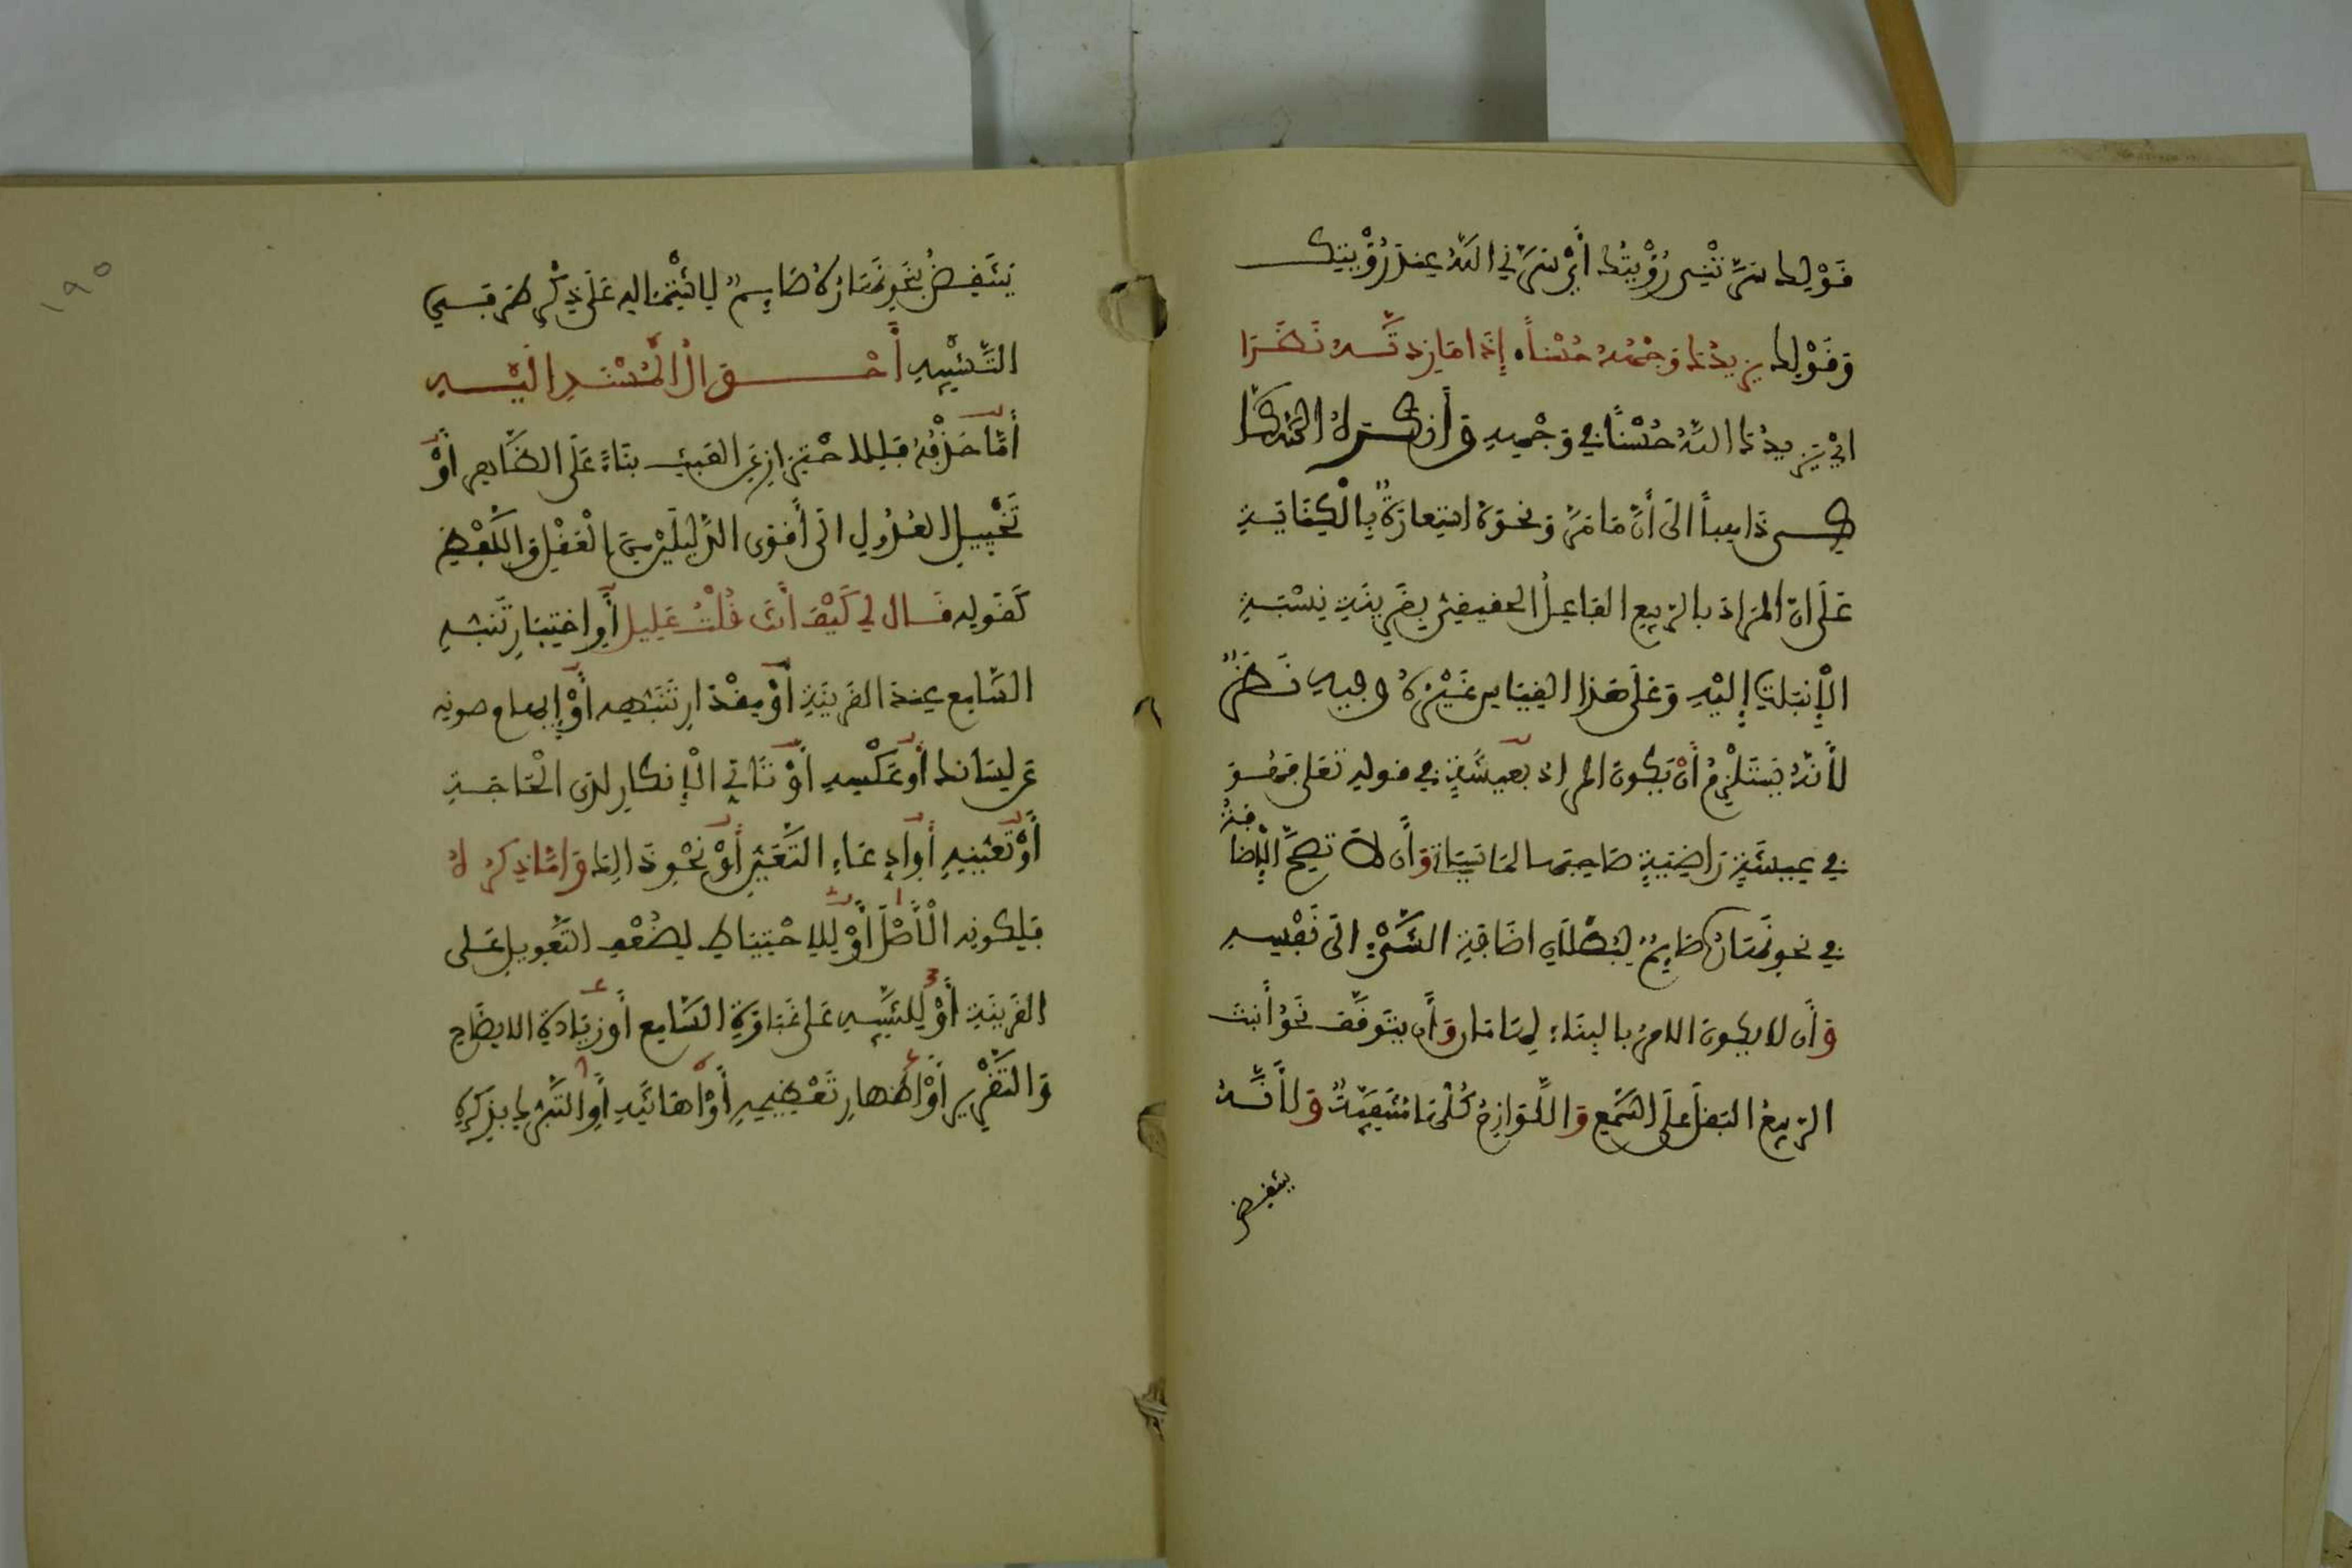 قَوْلِكَ سَرَّتْنِي رُؤْيَتُكَ أَيْ سَرَّنِي اللَّهُ عِنْدَ رُؤْيَتِكَ
وَقَوْلِكَ يَزِيدُكَ وَجْهُهُ حُسْناً إِذَا مَا زِدْتَّهُ نَظَرَا
اي يَزِيدُكَ اللَّهُ حُسْنًا فِي وَجْهِهِ وَأَنْكَرَهُ السَّكَّا
كِي ذَاهِباً الى أَنَّ مَا مَرَّ وَنَحْوَهُ اسْتِعَارَةٌ بِالْكِنَايَةِ
عَلَى ان المُرَادَ بِالرَّبِيعِ الفَاعِلُ الحقيقيّ بِقَرِينَةِ نِسْبَةِ
الْإِنْبَاتِ إِلَيْهِ وَعَلَى هَذَا القِيَاسِ غَيْرُهُ وَفِيهِ نَظَرٌ
لأَنَّهُ يَسْتَلْزِمُ أَنْ يَكُونَ المراد بعِيشَةٍ في قوله تعلى فَهُوَ
فِي عِيشَةٍ رَاضِيَةٍ صَاحِبَهَا لمَا سَيَاتِي وَأَن لاَ تَصِحَّ الْإِضَافَةُ
فِي نحو نَهَارُهُ صَايِمٌ لِبُطْلَانِ اضَافَةِ الشَّيْءِ الى نَفْسِهِ
وَأَن لا يكون الامرُ بالبِنَاءِ لِهَامَان وَأَن يَتَوَقَّفَ نَحْوُ أَنْبَتَ
الرَّبِيعُ البَقْلَ عَلَى السَّمْعِ وَاللَّوَازِمُ كُلُّهَا مُنْتَفِيَةٌ وَلأَنَّهُ
ينتقض
١٩٥
يَنْتَقِضُ بِنَحْوِ نَهَارُهُ صَايِمٌ لِاشْتِمَالِهِ عَلَى ذِكْرِ طَرَفَيِ
التَّشْبِيهِ أَحْوَالُ الْمُسْنَدِ الَيْهِ
أَمَّا حَذْفُهُ فَلِلاحْتِرَازِ عَنِ العَبَثِ بِنَاءً عَلَى الظَّاهِرِ أَوْ
تَخْيِيلِ العُدُولِ الى أَقْوَى الدَّلِيلَيْنِ مِنَ الْعَقْلِ وَاللَّفْظِ
كَقَوْلِهِ قَالَ لِي كَيْفَ أَنْتَ قُلْتُ عَلِيلُ أَوِ اخْتِبَارِ تَنَبُّهِ
السَّامِعِ عِنْدَ القَرِينَةِ أَوْ مِقْدَارِ تَنَبُّهِهِ أَوْ إِيهَامِ صونه
عَن لِسَانِكَ أَوْ عَكْسِهِ أَوْ تَأَتِّي الْإِنكَارِ لَدَى الْحَاجَةِ
أَوْ تَعَيُّنِهِ أَوِ ادِّعَاءِ التَّعَيُّنِ أَوْ نَحْوِ ذَالِكَ وَأَمَّا ذِكْرُهُ
فَلِكَوْنِهِ الْأَصْلَ أَوْ لِلِاحْتِيَاطِ لِضُعْفِ التَّعْوِيلِ عَلَى
القَرِينَةِ أَوْ لِلتَّنْبِيهِ عَلَى غَبَاوَةِ السَّامِعِ أَوْ زِيَادَةِ الايضَاحِ
وَالتَّقْرِيرِ أَوْ اظْهَارِ تَعْظِيمِهِ أَوْ اهَانَتِهِ أَوِ التَّبَرُّكِ بِذِكْرِهِ